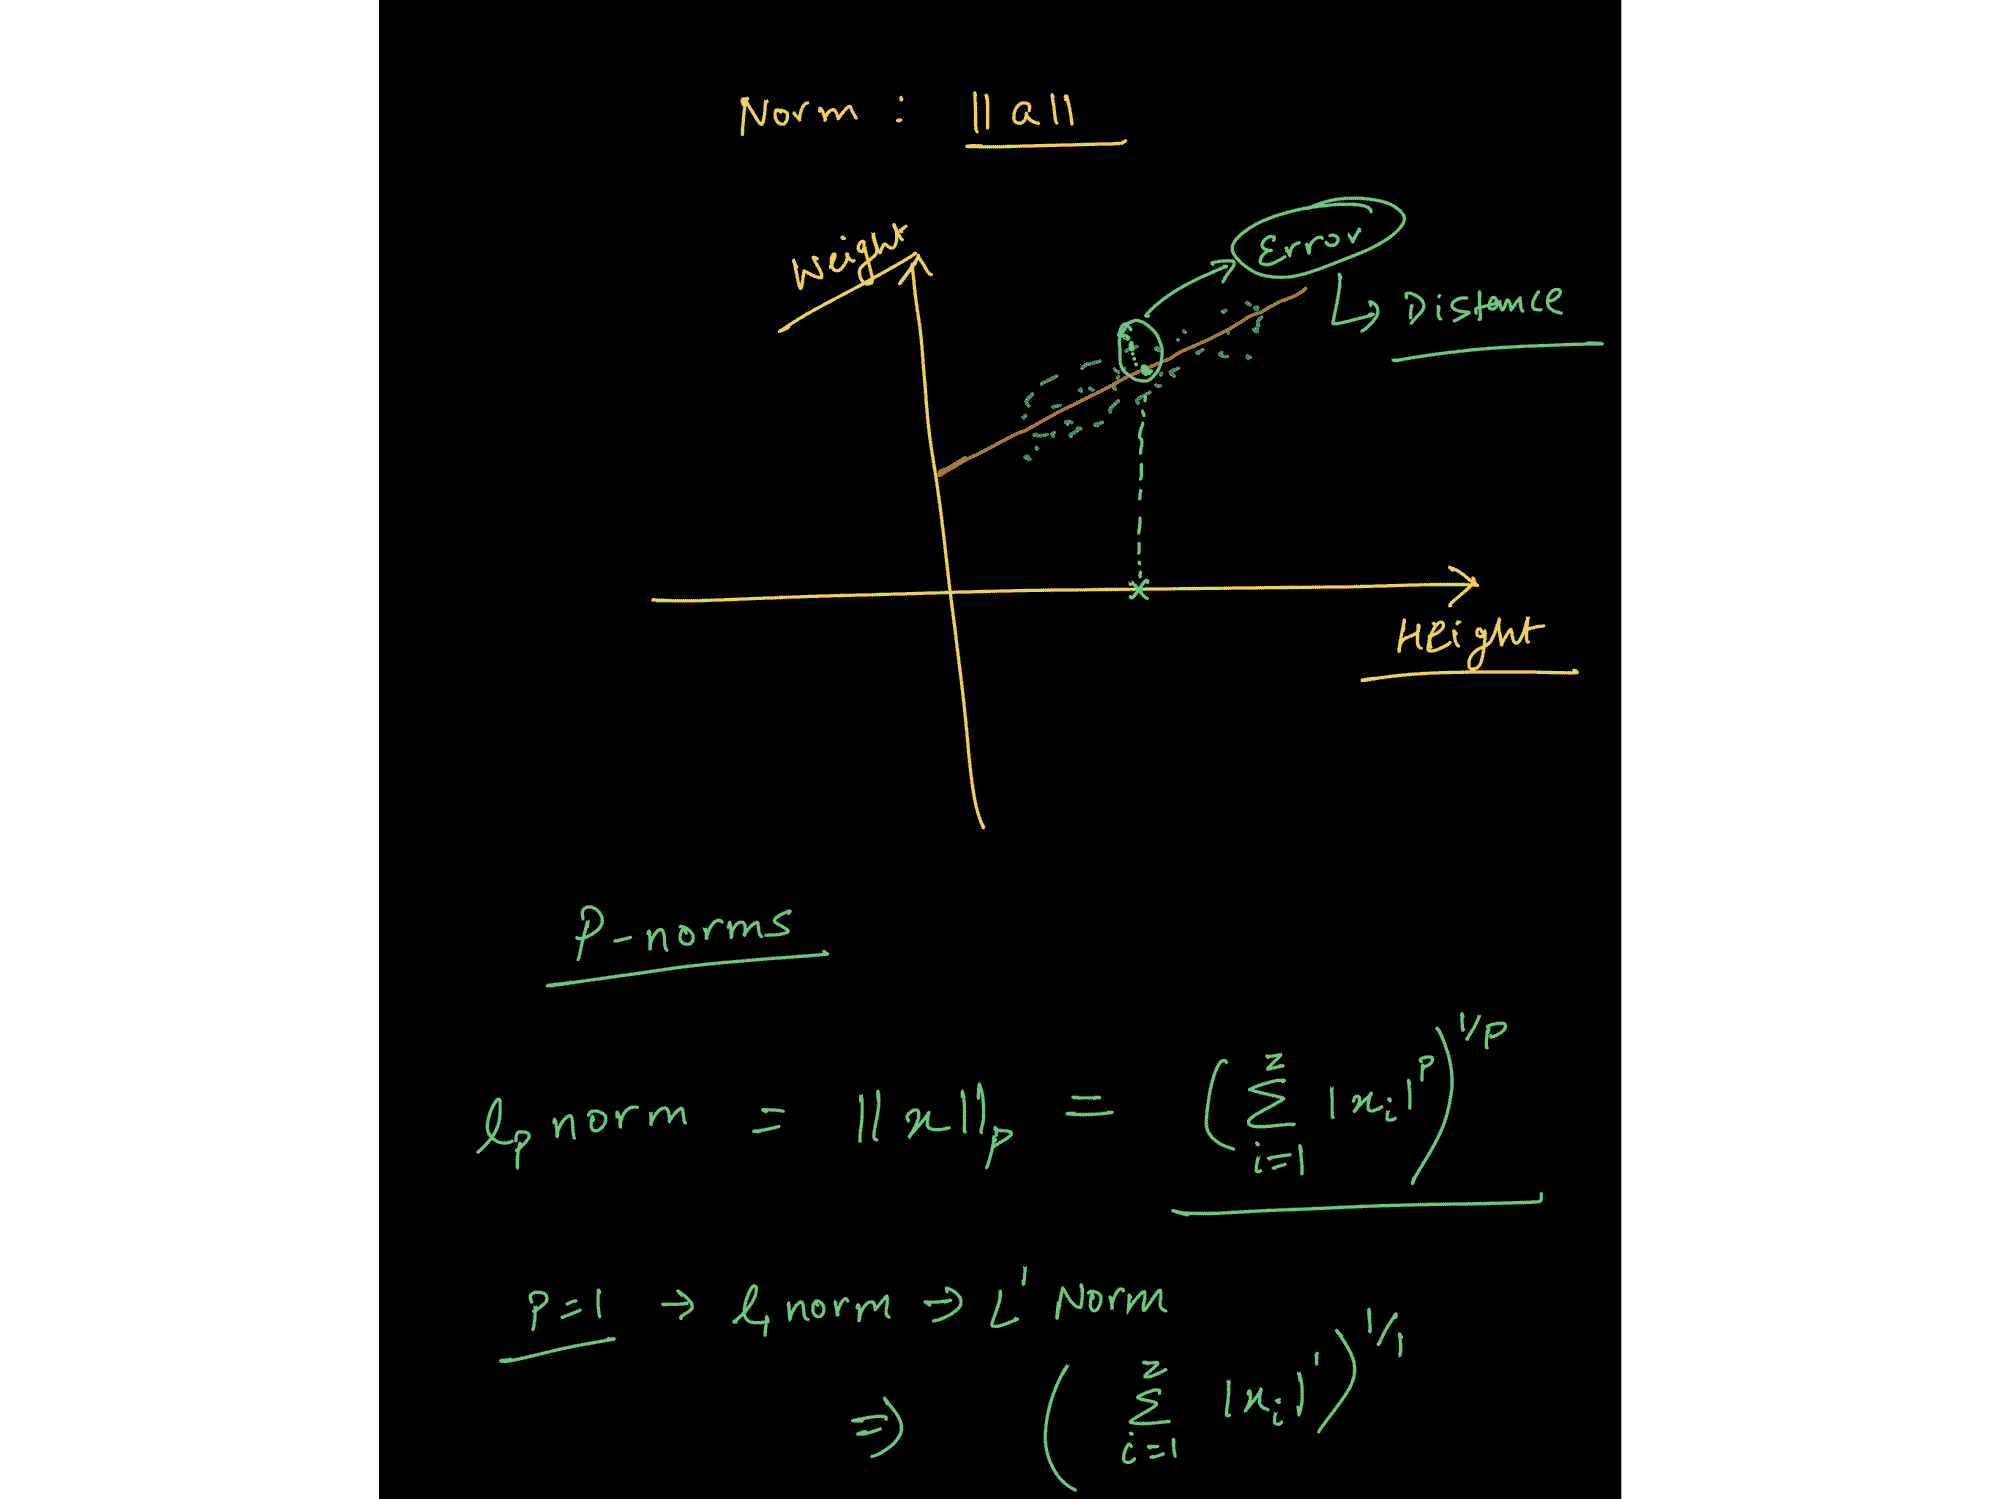 Norm : ||a||
Weight
Error
Distance
Height
P-norms
lp norm = ||x||p = (Σ i=1 N |xi|^p)^1/p
P=1 → l1 norm → L¹ Norm
⇒ (Σ i=1 N |xi|¹)^1/1